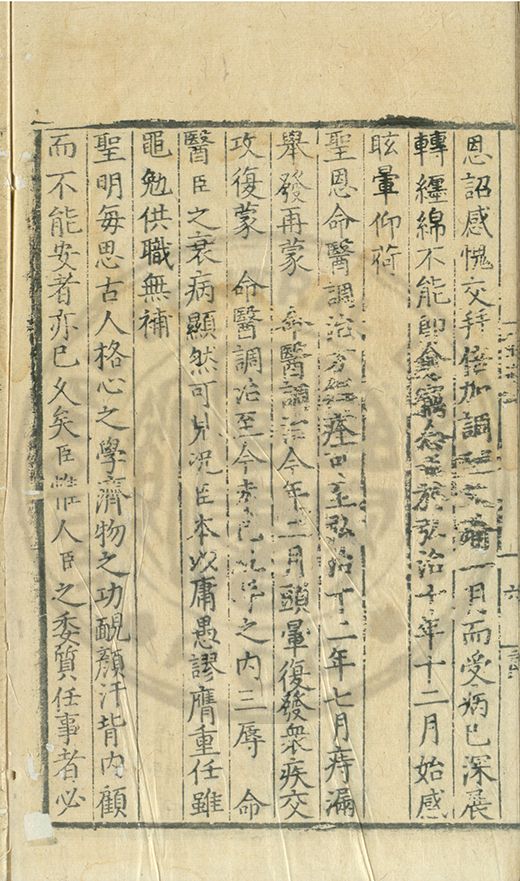 恩詔感愧交拜倍加調理一月而受病已深展
轉纏綿不能即愈竊念臣於弘治十年十二月始感
眩暈仰荷
聖恩命醫調治方痊至弘治十二年七月痔漏
舉發再蒙 命醫調治今年二月頭暈復發衆疾交
攻復蒙 命醫調治至今之內三辱 命
醫臣之衰病顯然可見況臣本以庸愚謬膺重任雖
黽勉供職無補
聖明每思古人格心之學濟物之功覥顏汗背內顧
而不能安者亦已久矣臣惟人臣之委質任事者必